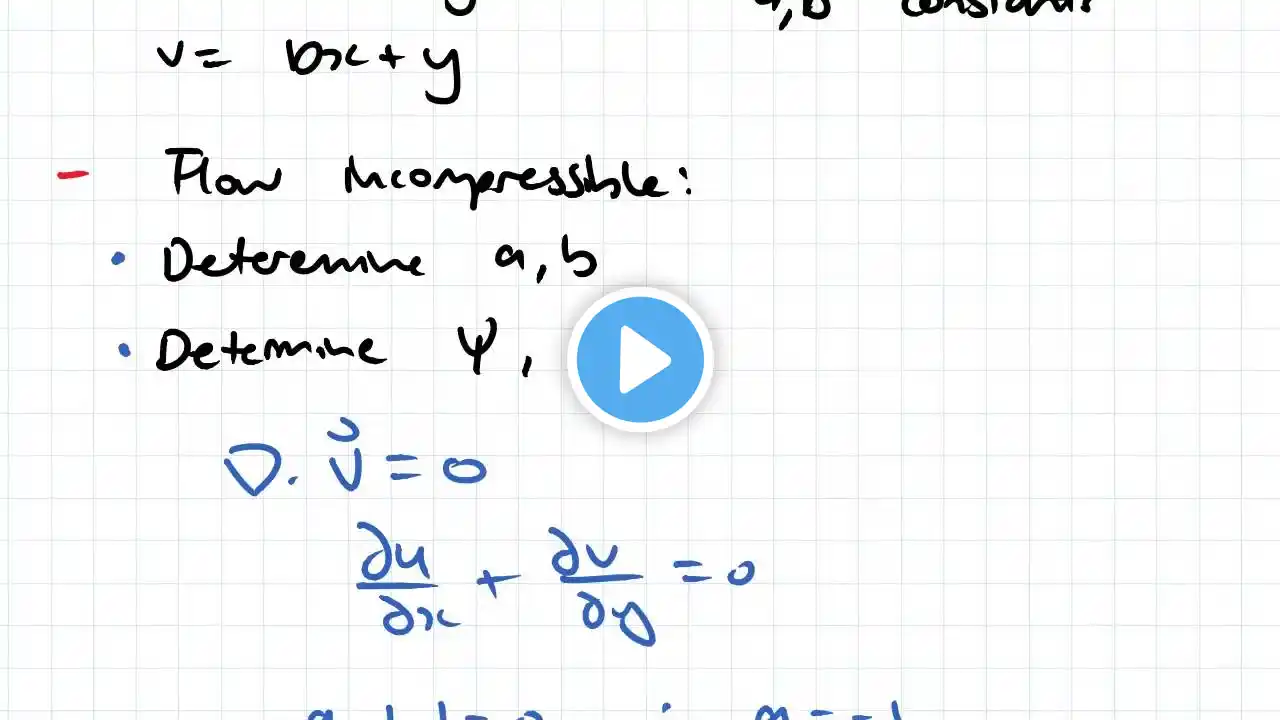 y a, b constants
v = bx + y
- Flow incompressible:
• Deteremine a, b
• Determine ψ,
∇. v = 0
∂u/∂x + ∂v/∂y = 0
a + 1 = 0 ∴ a = -1